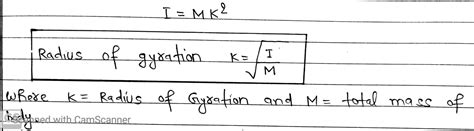 I = MK²
Radius of gyration K = √(I/M)
where K = Radius of Gyration and M = total mass of
body.
Scanned with CamScanner